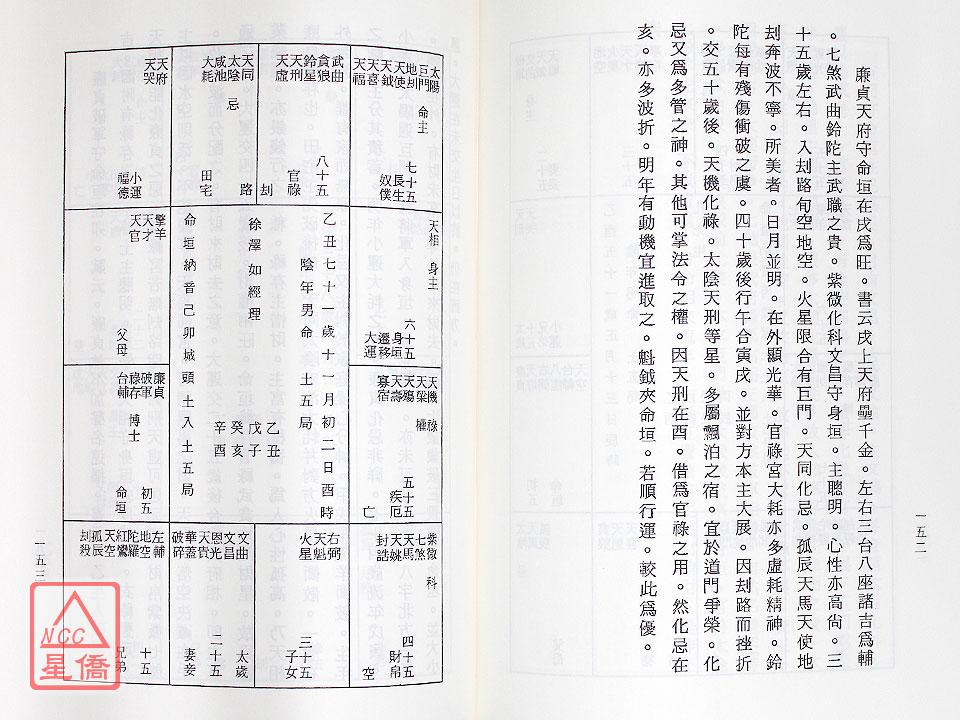 廉貞天府守命垣在戌爲旺。書云戌上天府壘千金。左右三台八座諸吉爲輔
。七煞武曲鈴陀主武職之貴。紫微化科文昌守身垣。主聰明。心性亦高尙。三
十五歲左右。入刦路旬空地空。火星限合有巨門。天同化忌。孤辰天馬天使地
刦奔波不寧。所美者。日月並明。在外顯光華。官祿宮大耗亦多虛耗精神。鈴
陀每有殘傷衝破之虞。四十歲後行午合寅戌。並對方本主大展。因刦路而挫折
。交五十歲後。天機化祿。太陰天刑等星。多屬飄泊之宿。宜於道門爭榮。化
忌又爲多管之神。其他可掌法令之權。因天刑在酉。借爲官祿之用。然化忌在
亥。亦多波折。明年有動機宜進取之。魁鉞夾命垣。若順行運。較此爲優。
一五二
太陽
巨門 命主
地刦
天使
天鉞
天喜
天福
七十五
長生
奴僕
武曲
貪狼
鈴星
天刑
天虛
八十五
官祿
刦
天同
太陰 忌
咸池
大耗
路
田宅
天府
天哭
小運
福德
天相 身主
六十五
身垣
遷移
大運
乙丑七十一歲十一月初二日酉時
陰年男命 土五局
徐澤如經理
乙丑
戊子
癸亥
辛酉
命垣納音己卯城頭土入土五局
擎羊
天才
天官
父母
天機 祿
天梁 權
天殤
天壽
寡宿
五十五
疾厄
亡
廉貞
破軍
祿存
台輔
博士
初五
命垣
紫微 科
七煞
天馬
天姚
封誥
四十五
財帛
空
右弼
天魁
火星
三十五
子女
文曲
文昌
恩光
天貴
華蓋
破碎
太歲
二十五
妻妾
左輔
地空
陀羅
紅鸞
天空
孤辰
刦殺
十五
兄弟
一五三
NCC
星僑